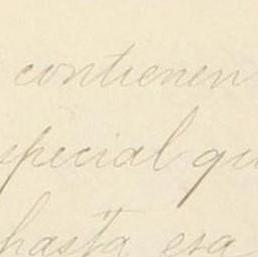 contienen
special qu
hasta esa